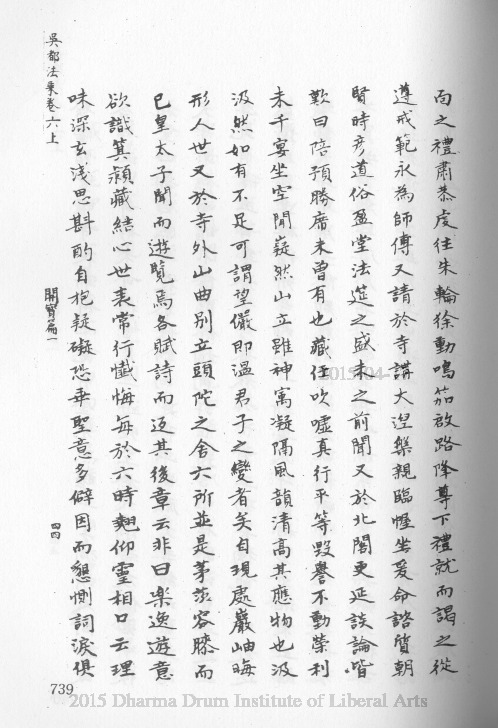 而之禮肅恭度往朱輪徐動鳴笳啟路降尊下禮就而謁之從
遵戒範永為師傅又請於寺講大涅槃親臨幄坐爰命諮質朝
賢時彥道俗盈堂法筵之盛未之前聞又於北閣更延談論皆
歎曰陪預勝席未曾有也藏任吹噓真行平等毀譽不動榮利
未干宴坐空閒嶷然山立雖神寓凝隔風韻清高其應物也汲
汲然如有不足可謂望儼即溫君子之變者矣自現處巖岫晦
形人世又於寺外山曲別立頭陀之舍六所並是茅茨容膝而
已皇太子聞而遊覽焉各賦詩而返其後章云非曰樂逸遊意
欲識箕潁藏結心世表常行懺悔每於六時翹仰靈相口云理
味深玄淺思斟酌自抱疑礙恐乖聖意多僻因而懇惻詞淚俱
吳都法乘卷六上
開寶篇一
四四
739
2015-04-
2015 Dharma Drum Institute of Liberal Arts